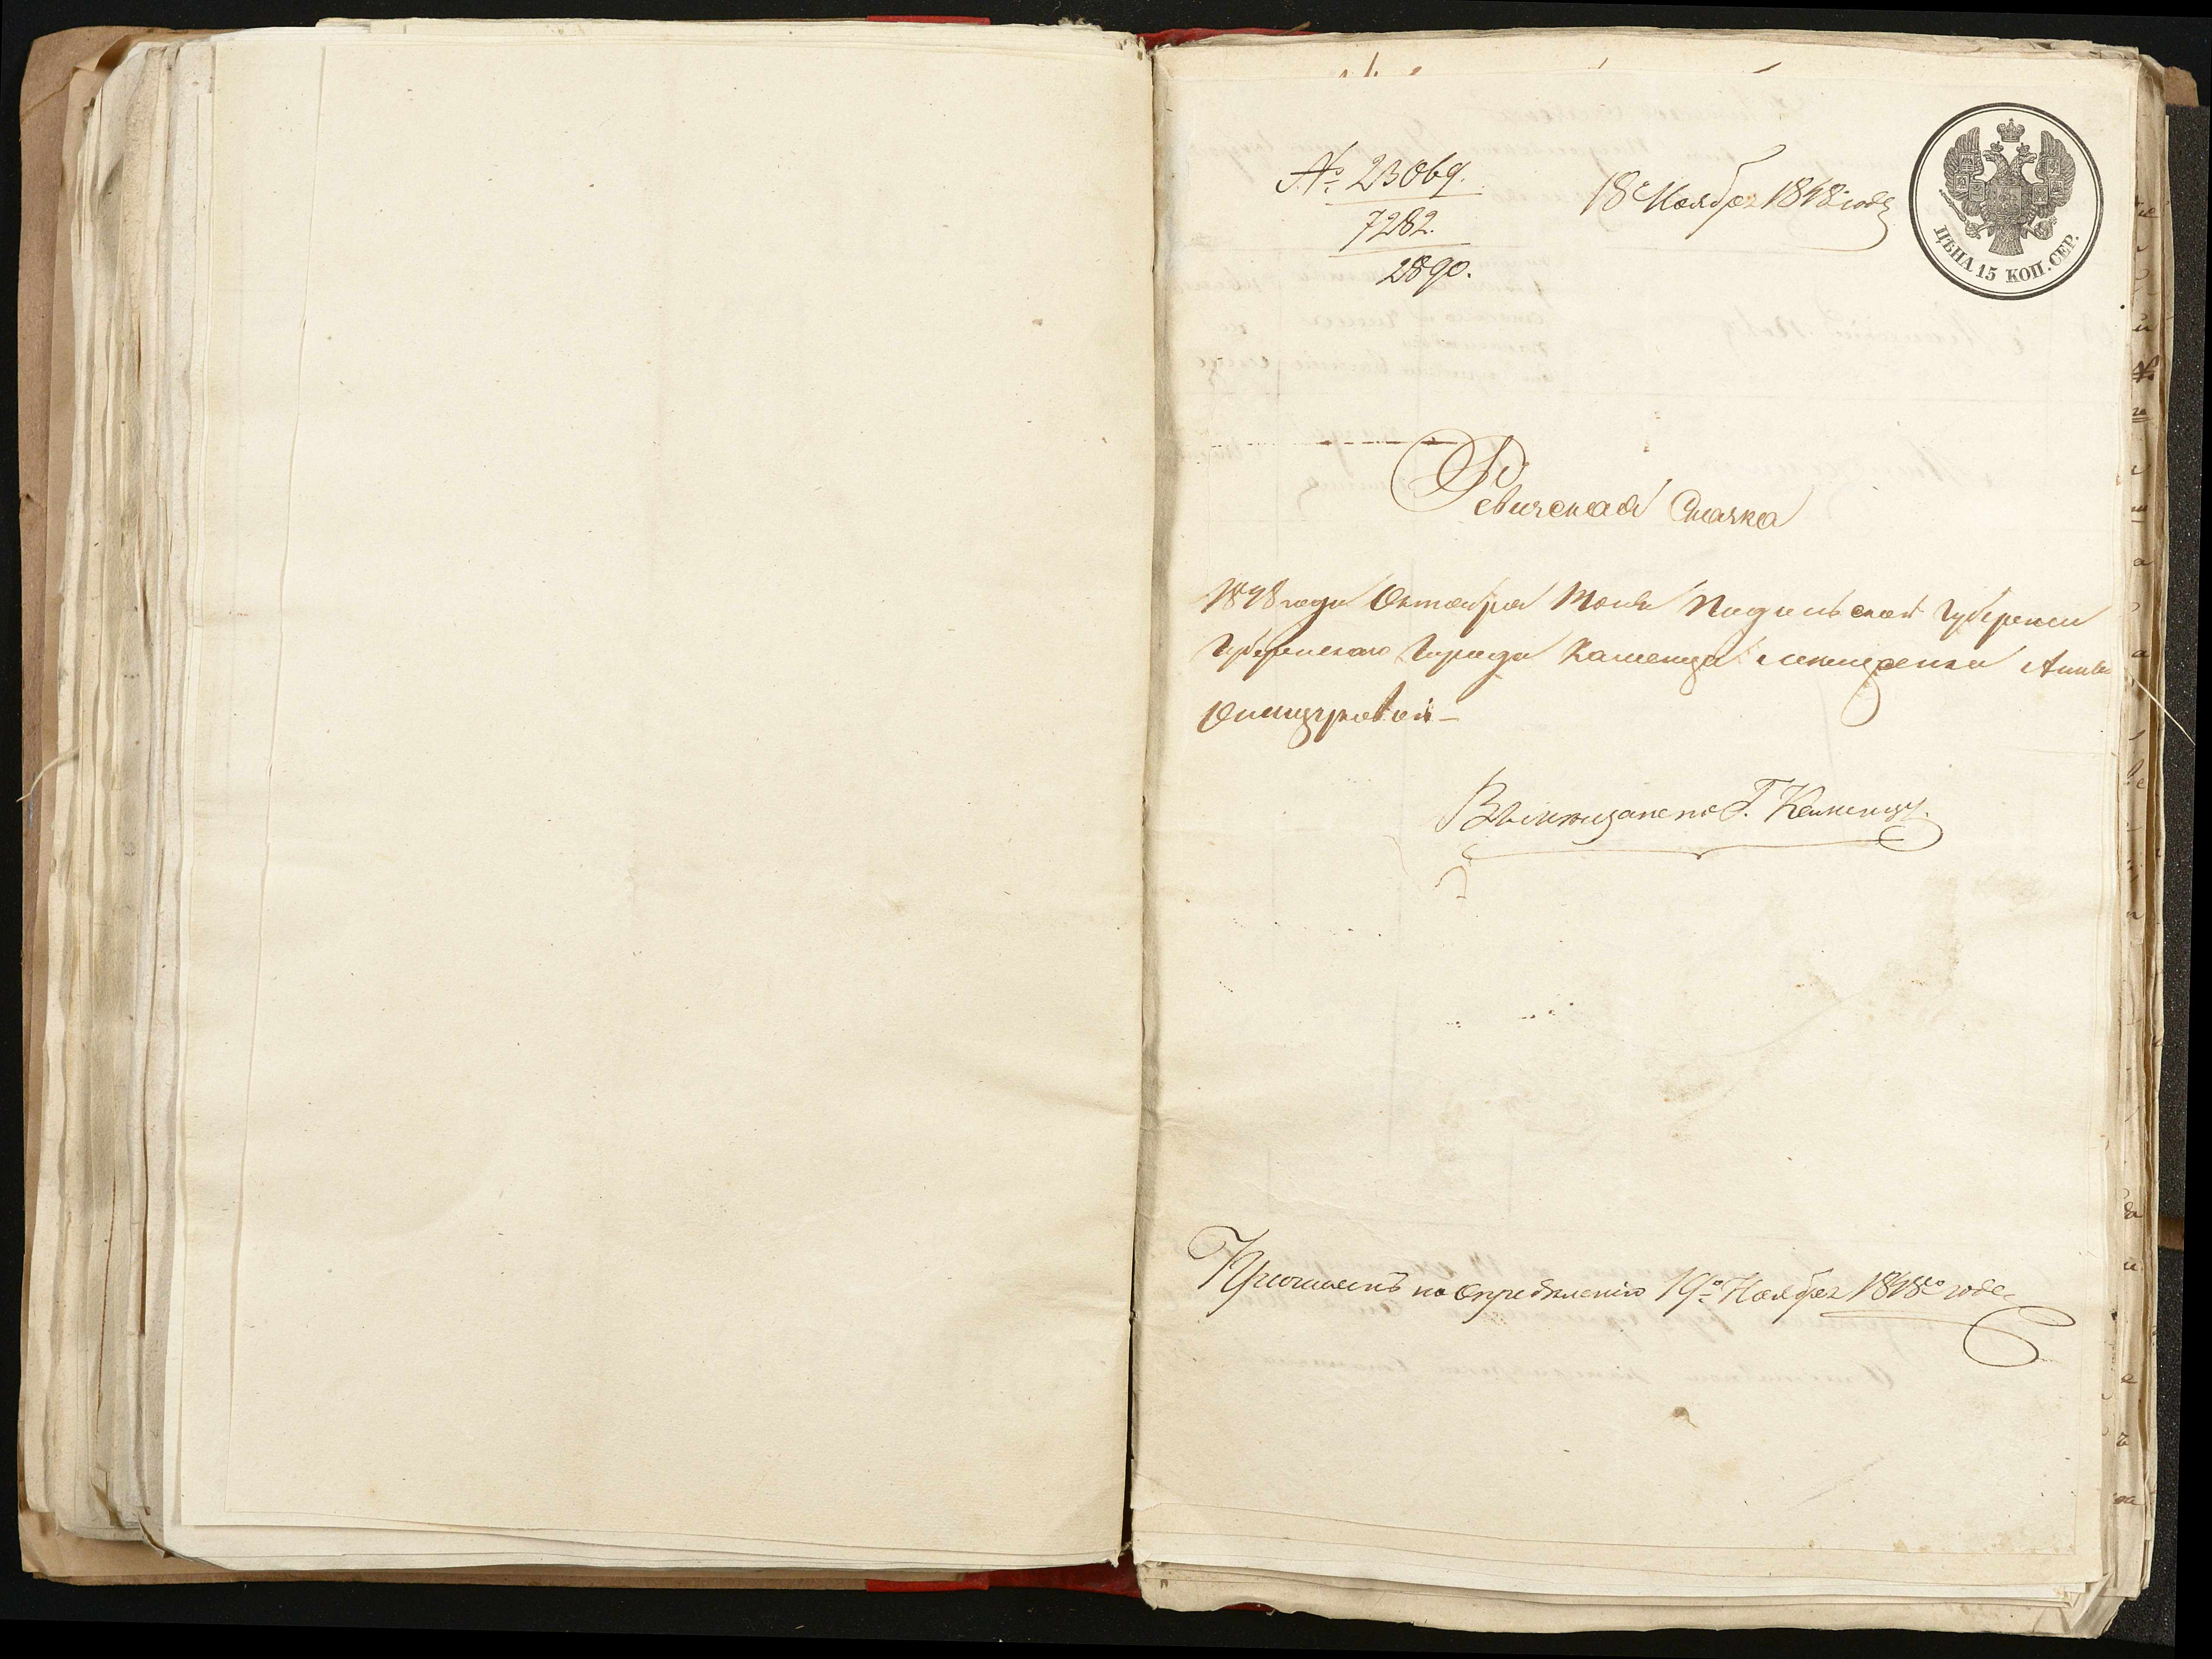 № 23069.
7282.
2890.
18 Ноября 1848 года
ЦѢНА 15 КОП. СЕР.
Ревизская Сказка
1848 года Октября Подольской Губернии
Губернскаго Города Каменца мещанки Анны
В мещане по Г. Каменцу.
по Определенію 19го Ноября 1848го года